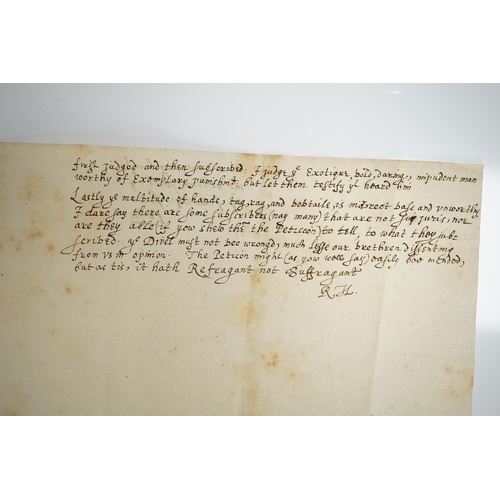 first judged and then subscribed. I judge ye Exotique, bold, daring, impudent man
worthy of Exemplary punishmt, but let them testify yt heard him
Lastly ye multitude of hands, tag, rag, and bobtaile, is indirect base and unworthy
I dare say there are some subscribers (nay many) that are not sui juris, nor
are they able (if yow shew the Peticon) to tell, to what they sub:
scribed. ye Divel must not bee wronged, much lesse our brethren dissenting
from us in opinion. The Peticon might (as yow well say) easily bee mended,
but as tis, it hath Refragant not Suffragant
R. H.